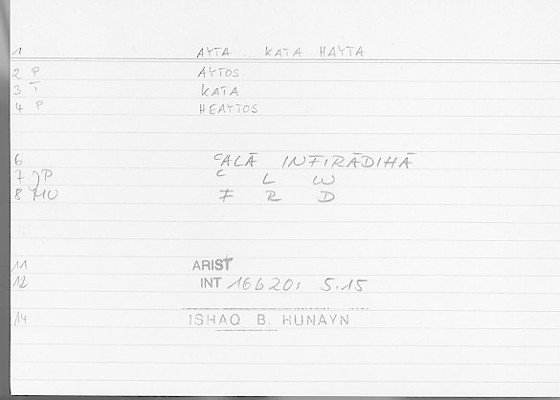 1 AYTA KATA HAYTA
2 P AYTOS
3 T KATA
4 P HEAYTOS
6 ʿALĀ INFIRĀDIHĀ
7 JP ʿ L W
8 MU F R D
11 ARIST
12 INT 16b20; 5.15
14 ISHAQ B. HUNAYN